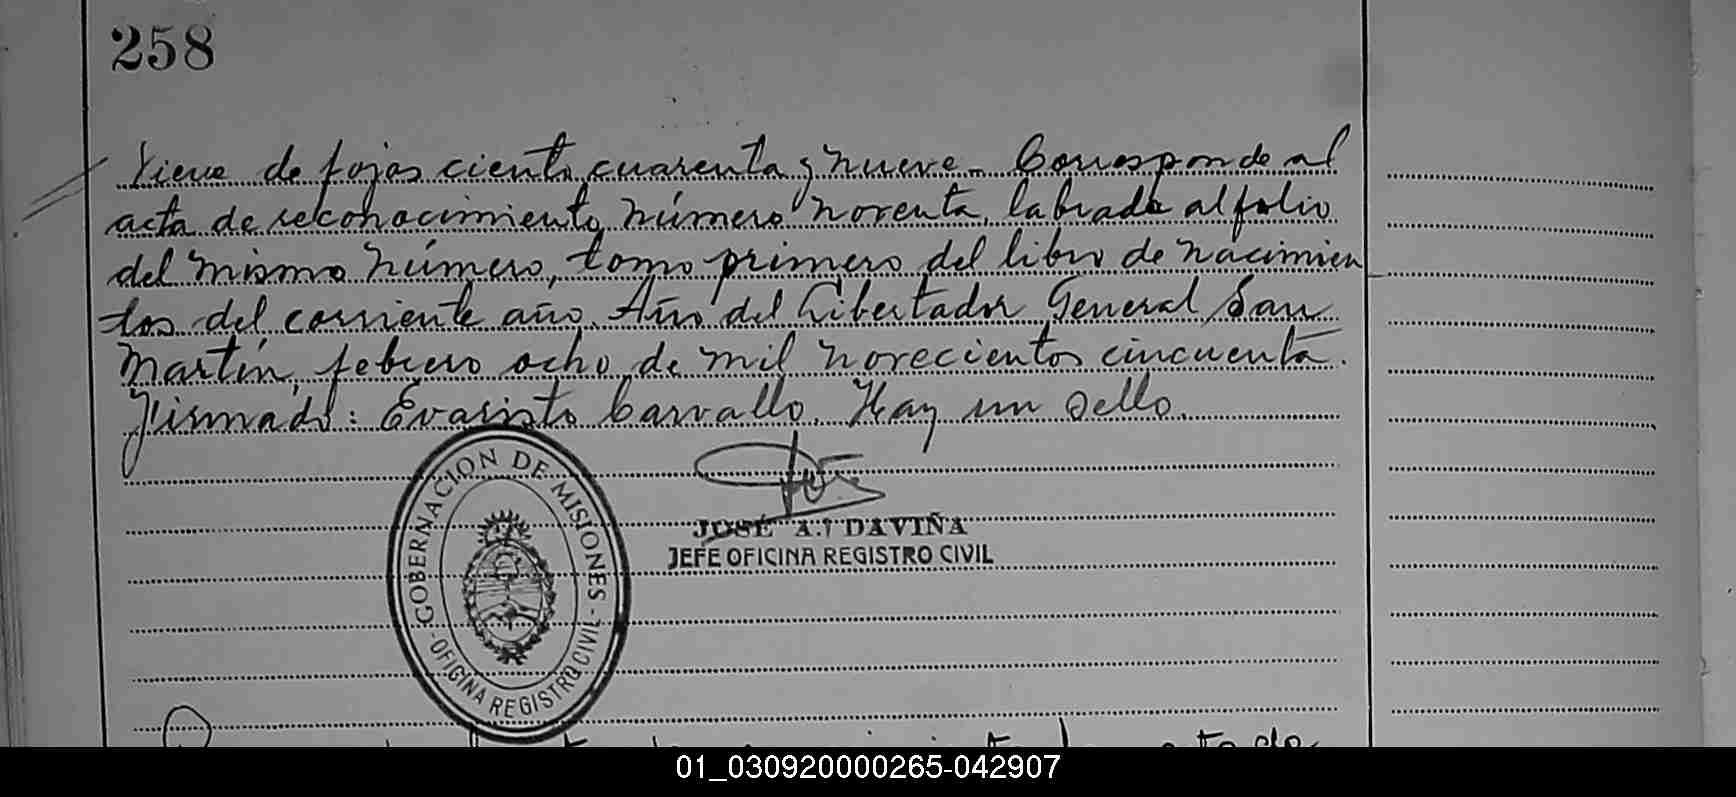 258
Viene de fojas ciento cuarenta y nueve. Corresponde al
acta de reconocimiento número noventa, labrada al folio
del mismo número, tomo primero del libro de nacimien
tos del corriente año. Año del Libertador General San
Martín, febrero ocho de mil novecientos cincuenta.
Firmado: Evaristo Carvallo. Hay un sello.
GOBERNACION DE MISIONES - OFICINA REGISTRO CIVIL -
JOSÉ A. DAVIÑA
JEFE OFICINA REGISTRO CIVIL
01_030920000265-042907